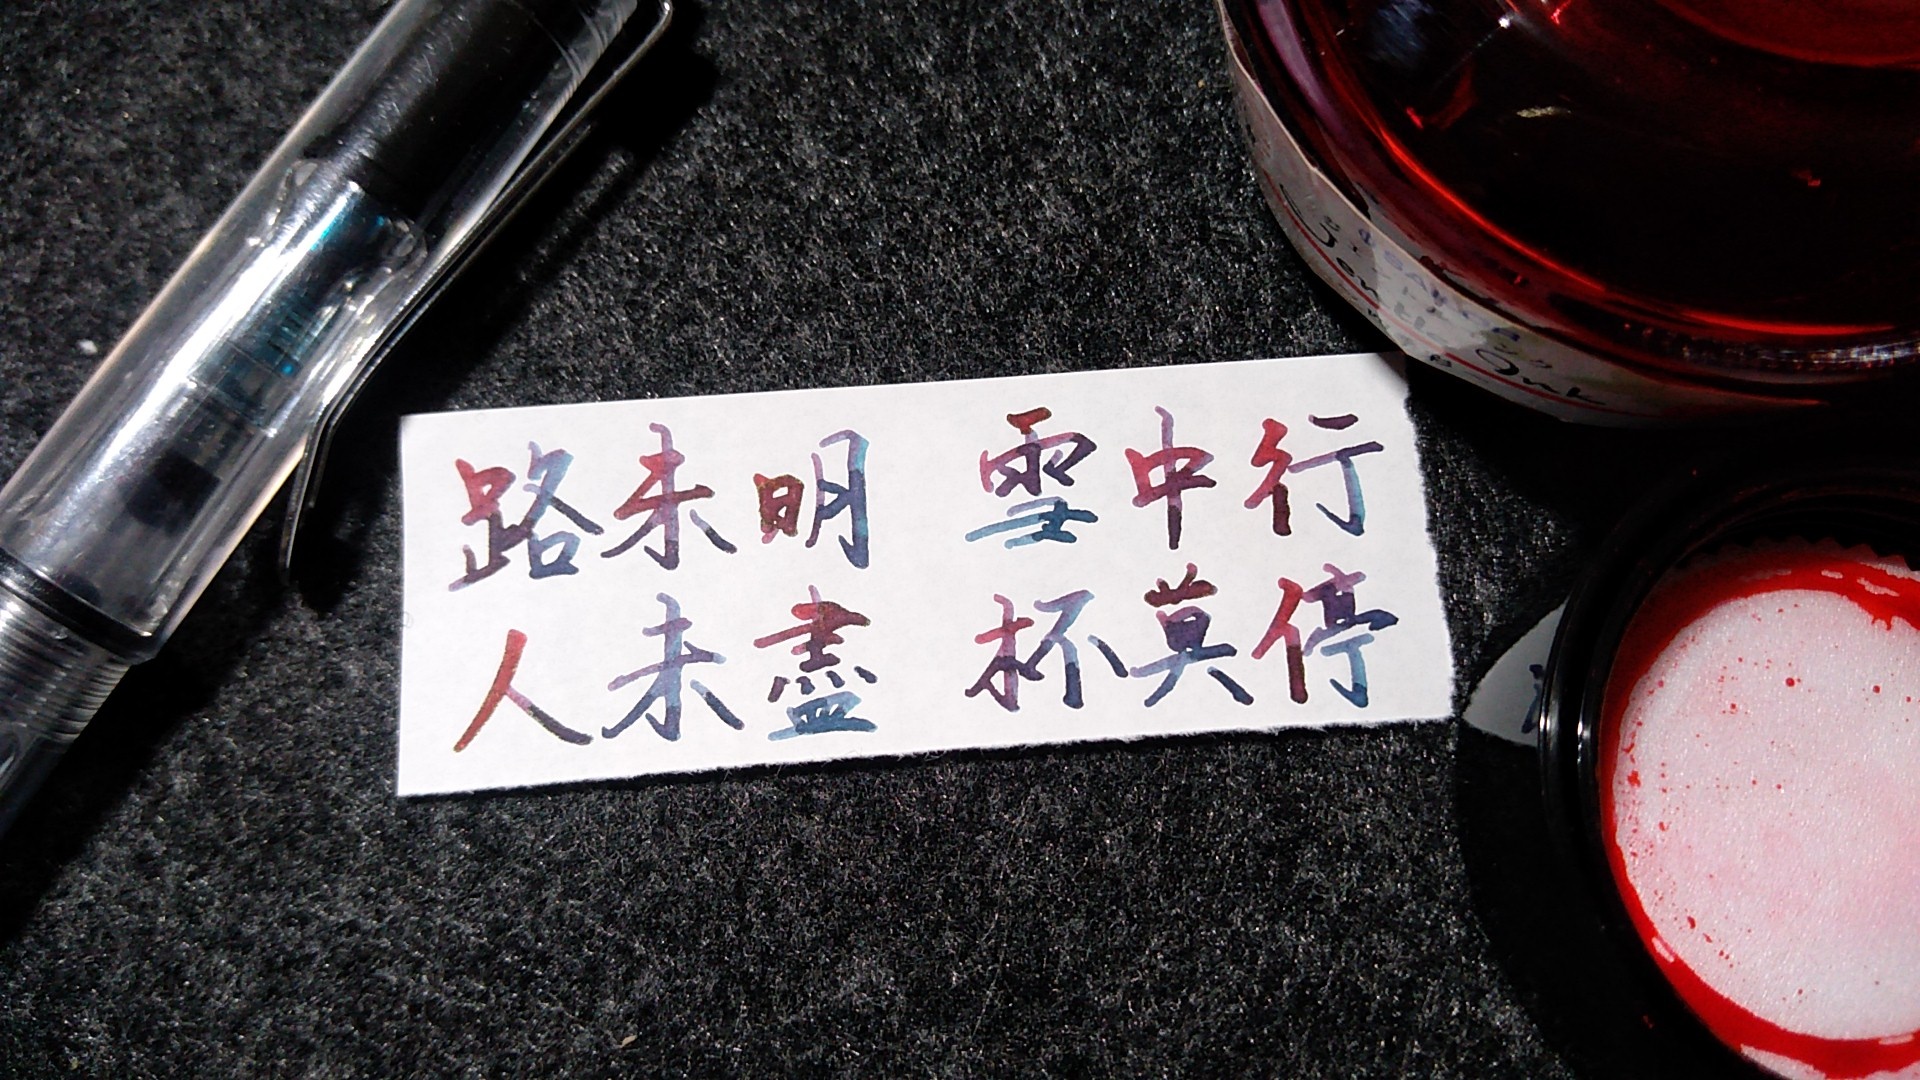 路未明 雪中行
人未盡 杯莫停
Ink